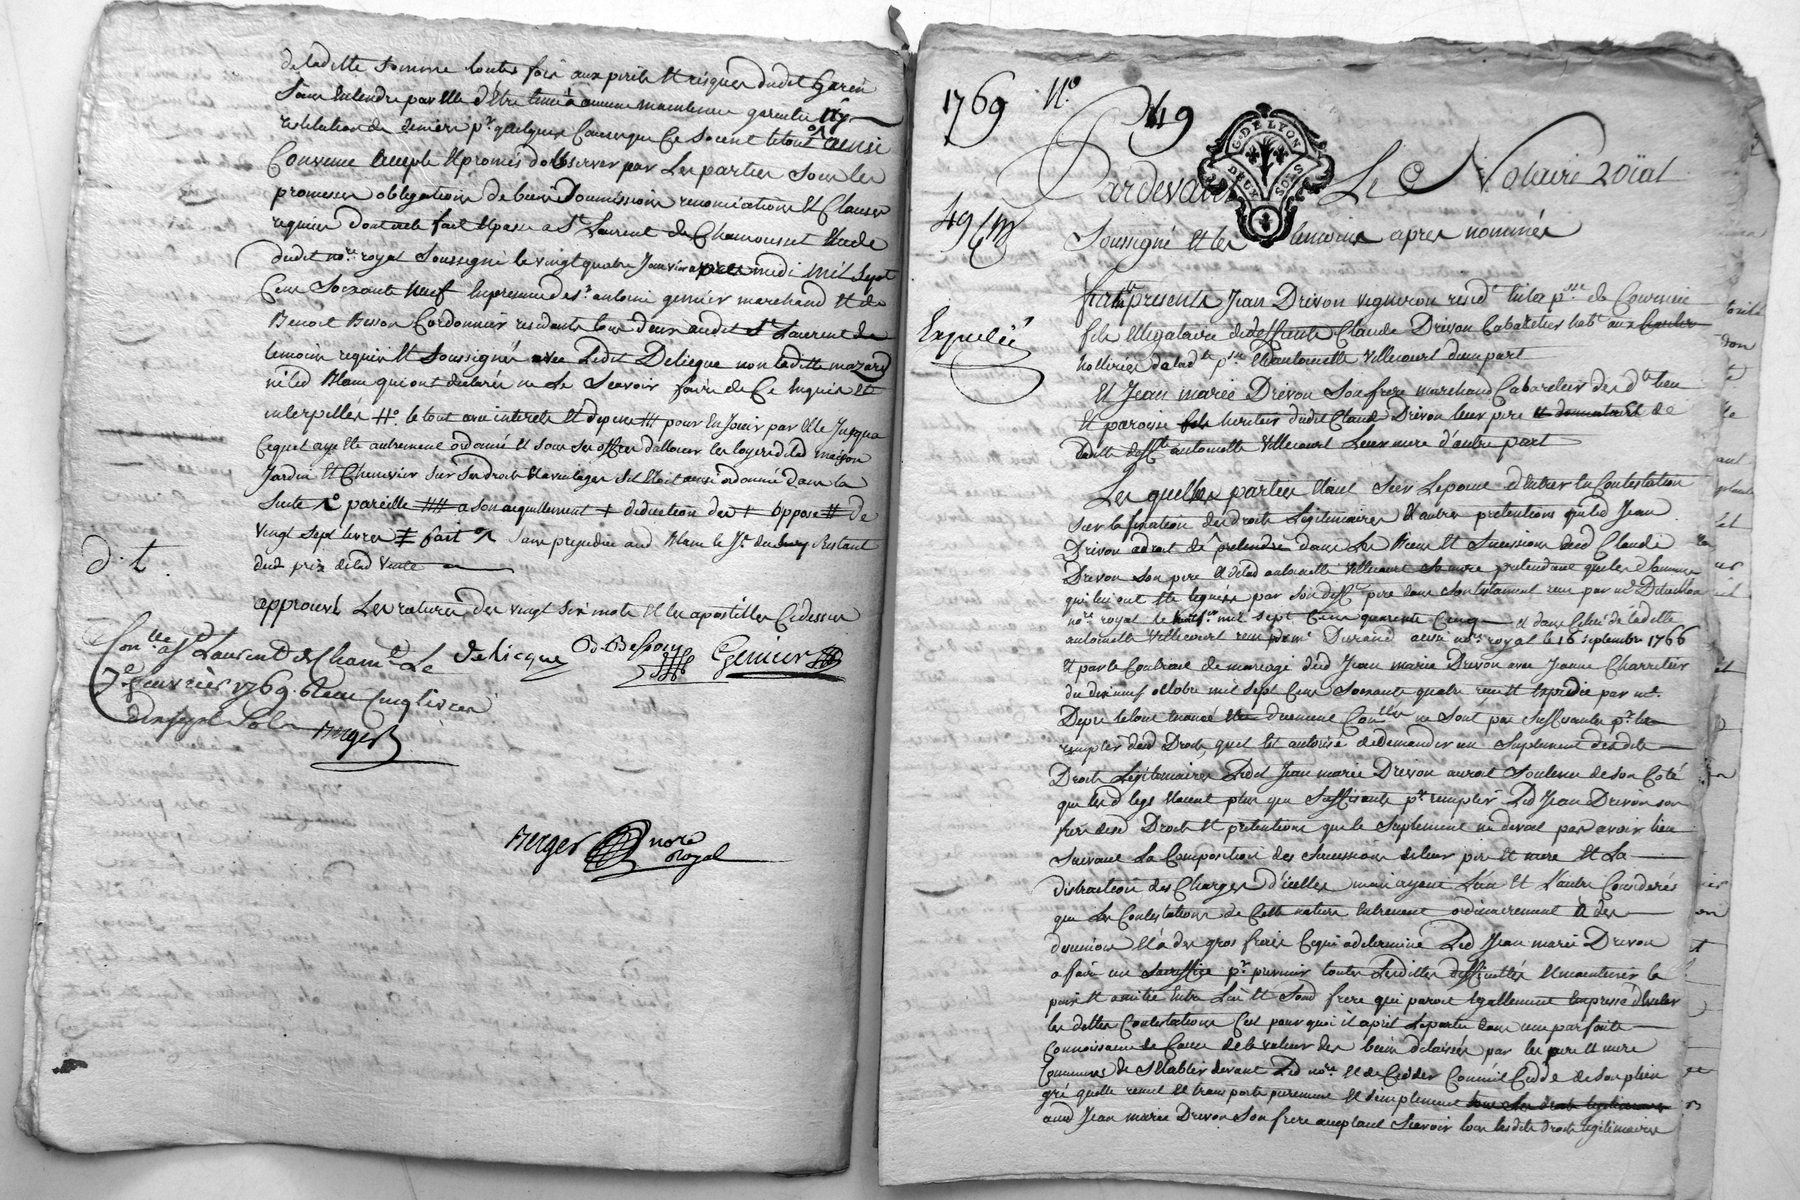 de ladite somme toutes fois aux perils et risques dudit
sans entendre par elle d'être tenue a aucune maintenue garentie ny
restitution de deniers pr quelques causes que ce soient le tout ainsi
convenu accepté et promis d'observer par les parties sous les
promesses obligations de biens soumissions renonciations et clauses
requises dont acte fait et passé a St Laurent de Chamousset etude
dudit nore royal soussigné le vingt quatre janvier après midi mil sept
cent soixante neuf en presence de sr antoine genier marchand et de
Benoit Besson cordonnier residants tous deux audit St Laurent
temoins requis et soussignés avec ledit Delicque non ladite
ni led Blanc qui ont declaré ne le scavoir faire de ce enquis et
interpellés le tout avec interets et depens pour en jouir par elle jusqua
cequ'il aye été autrement ordonné et sous ses offres d'allouer les loyers de lad maison
jardin et chenevier sur ses droits et avantages sil étoit ainsi ordonné dans la
suite pareille a son acquittement deduction des opposé de
vingt sept livres fait sans prejudice aud Blanc le
dud prix de lad vente
d. t.
approuvé les ratures des vingt six mots et les apostilles cidessus
Con.lle a St Laurent de Chamt. Le
delicque B. Besson Genier
7e fevrier 1769. Reçu cinq livres
dix sept sols Berger
Berger nore
Royal
1769 No. 49
G. DE LYON
DEUX SOLS
Pardevant Le Notaire royal
49
soussigné et les temoins après nommés
Expedié
fut présent Jean Drivon vigneron resid.t en la p.sse de Courzieu
fils et legataire de deffunt Claude Drivon cabaretier hab.t aux
de lad.te p.sse et d'antoinette Villecourt d'une part
et Jean marie Drivon son frere marchand cabaretier des d.ts lieu
et paroisse fils heritier dudit Claude Drivon leur pere et donnataire de
ladite deff.te antoinette Villecourt leur mere d'autre part
Les quelles parties etant sur le point d'entrer en contestation
sur la fixation des droits legitimaires et autres pretentions que led Jean
Drivon a droit de pretendre dans les biens et successions dud Claude
Drivon son pere et de lad antoinette Villecourt sa mere pretendant que les sommes
qui lui ont été leguées par son deff.t pere dans son testament reçu par me
nore royal le mil sept cent quarente cinq et dans celui de ladite
antoinette Villecourt reçu par me Durand aussi nore royal le 16 septembre 1766
et par le contrait de mariage dud Jean marie Drivon avec Jeanne Charretier
du dix neuf octobre mil sept cent soixante quatre reçu et expedié par me
Depré le tout enoncé duement Conllé ne sont pas suffisantes pr le
remplir desd Droits quil est autorisé de demander un suplement desdits
Droits legitimaires Ledit Jean marie Drivon auroit soutenu de son coté
que lesd legs etoient plus que suffisants pr remplir led Jean Drivon son
frere desd Droits et pretentions que le suplement ne devoit pas avoir lieu
suivant la composition des successions de leur pere et mere et la
distraction des charges d'icelles mais ayant l'un et l'autre considerés
que les contestations de cette nature entrenent ordinairement a des
dissensions et a des gros frais ce qui a determiné led Jean marie Drivon
a faire un sacriffice pr prevenir toutes lesdittes difficultés et maintenir la
paix et amitié entre lui et sond frere qui paroit egallement empressé d'eviter
les dittes contestations c'est pourquoi il a pris le parti dans une parfaite
connoissance de cause de la valeur des biens delaissés par les pere et mere
communs de s'etablir devant led nore et de ceder comme il cedde de son plein
gré quitte remet et transporte purement et simplement tous ses droits legitimaires
aud Jean marie Drivon son frere acceptant scavoir tous lesdits droits legitimaires